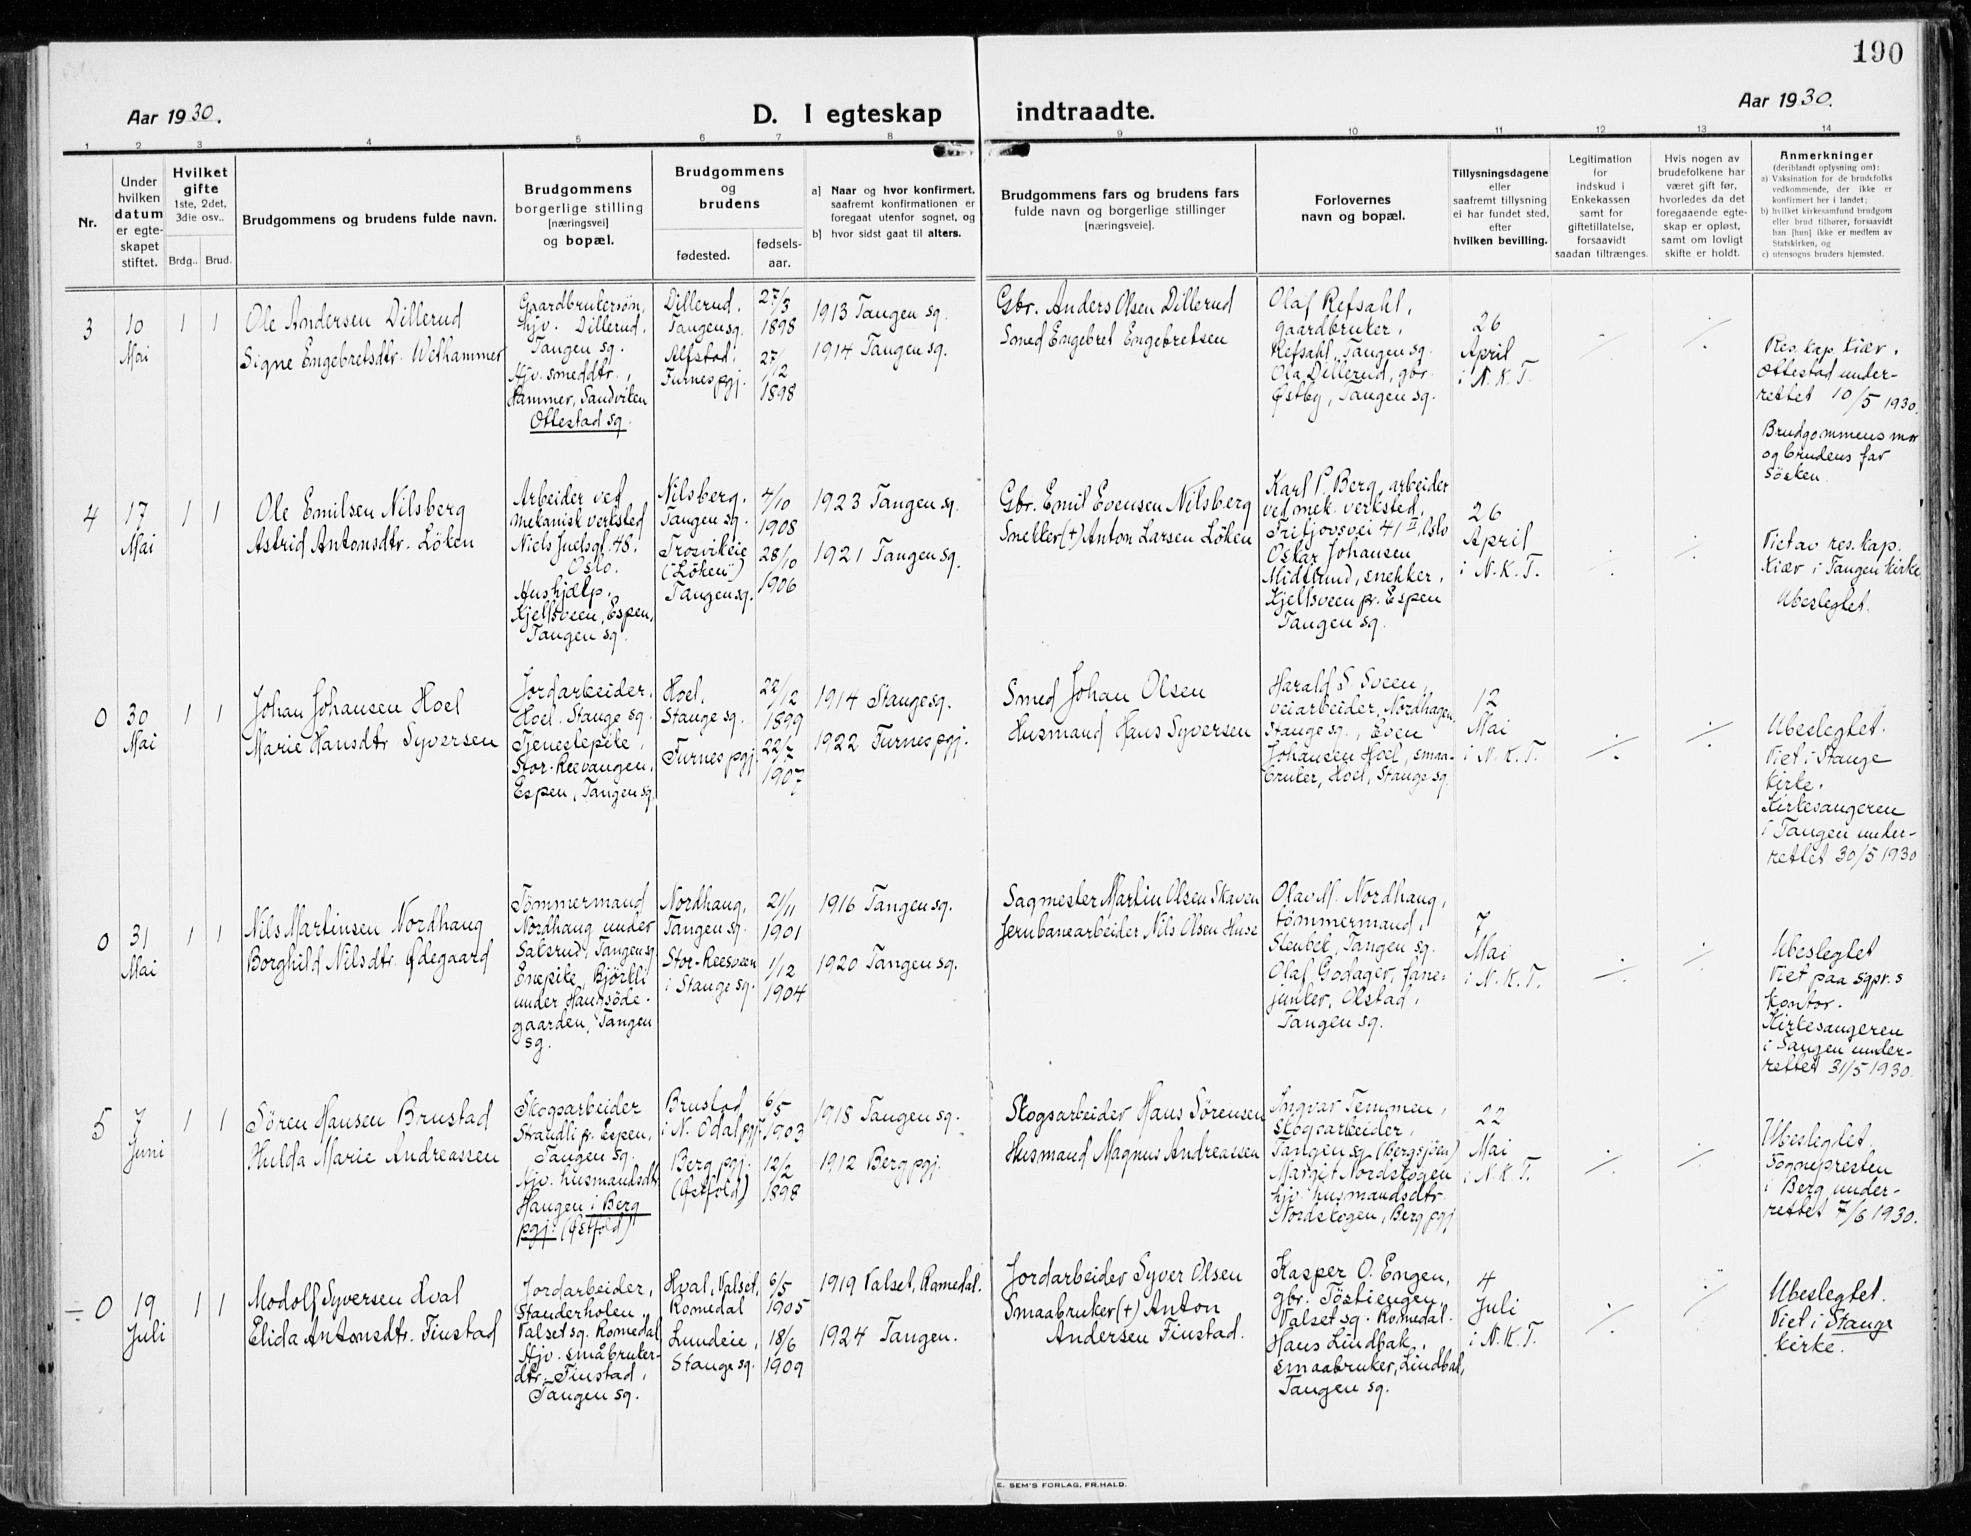 190
Aar 1930.
D. I egteskap indtraadte.
Aar 1930.
1 2 3 4 5 6 7 8 9 10 11 12 13 14
Nr.
Under
hvilken
datum
er egte-
skapet
stiftet.
Hvilket
gifte
1ste, 2det,
3die osv..
Brdg.. Brud.
Brudgommens og brudens fulde navn.
Brudgommens
borgerlige stilling
[næringsvei]
og bopæl.
Brudgommens
og
brudens
fødested.
fødsels-
aar.
a] Naar og hvor konfirmert,
saafremt konfirmationen er
foregaat utenfor sognet, og
b] hvor sidst gaat til alters.
Brudgommens fars og brudens fars
fulde navn og borgerlige stillinger
[næringsveie].
Forlovernes
navn og bopæl.
Tillysningsdagene
eller
saafremt tillysning
ei har fundet sted,
efter
hvilken bevilling.
Legitimation
for
indskud i
Enkekassen
samt for
giftetillatelse,
forsaavidt
saadan tiltrænges.
Hvis nogen av
brudefolkene har
været gift før,
hvorledes da det
foregaaende egte-
skap er opløst,
samt om lovligt
skifte er holdt.
Anmerkninger
(deriblandt oplysning om):
a) Vaksination for de brudefolks
vedkommende, der ikke er
konfirmert her i landet;
b) hvilket kirkesamfund brudgom
eller brud tilhører, forsaavidt
han [hun] ikke er medlem av
Statskirken, og
c) utensogns bruders hjemsted.
3
10
Mai
1 1
Ole Andersen Dillerud
Signe Engebretsdtr. Wethammer
Gaardbrukersøn,
hjv. Dillerud,
Tangen sq.
Hjv. smeddtr.,
Hammer, Sandviken
Ottestad sq.
Dillerud,
Tangen sq.
Alfstad,
Furnes pgj.
27/3
1898
27/12
1898
1913 Tangen sq.
1914 Tangen sq.
Gbr. Anders Olsen Dillerud
Smed Engebret Engebretsen
Olaf Refsahl,
gaardbruker,
Refsahl, Tangen sq.
Ola Dillerud, gbr.
Østby, Tangen sq.
26
April
i N. K. T.
./.
./.
Res. kap. Kiær,
Ottestad under-
rettet 10/5 1930.
Brudgommens mor
og brudens far
søsken
4
17
Mai
1 1
Ole Emilsen Nilsberg
Astrid Antonsdtr. Löken
Arbeider ved
mekanisk verksted
Niels Juelsgt. 48,
Oslo.
Hushjælp,
Kjeltsveen, Espen,
Tangen sq.
Nilsberg,
Tangen sq.
(Löken)
Tangen sq.
4/10
1908
28/10
1906
1923 Tangen sq.
1921 Tangen sq.
Gbr. Emil Evensen Nilsberg
Snekker (+) Anton Larsen Löken
Karl P Berg, arbeider
ved mek. verksted,
Fritjovsvei 41 II, Oslo
Oskar Johansen
Midtlund, snekker,
Kjeltsveen pr. Espen
Tangen sq.
26
April
i N. K. T.
./.
./.
Viet av res. kap.
Kiær i Tangen kirke
Ubeslegtet.
0
30
Mai
1 1
Johan Johansen Hoel
Marie Hansdtr Syversen
Jordarbeider,
Hoel, Stange sq.
Tjenestepike,
Stor-Reevangen,
Espen, Tangen sq.
Hoel,
Stange sq.
Furnes pgj.
22/12
1899
22/7
1907
1914 Stange sq.
1922 Furnes pgj.
Smed Johan Olsen
Husmand Hans Syversen
Harald S Sveen,
veiarbeider, Nordhagen,
Stange sq., Even
Johansen Hoel, smaa-
bruker, Hoel, Stange sq.
12
Mai
i N. K. T.
./.
./.
Ubeslegtet.
Viet i Stange
kirke.
Kirkesangeren
i Tangen under-
rettet 30/5 1930
0
31
Mai
1 1
Nils Martinsen Nordhaug
Borghild Nilsdtr. Ødegaard
Tömmermand
Nordhaug under
Sakerud, Tangen sq
Enepike, Björkli
under Haugsöde-
gaarden, Tangen
sq.
Nordhaug,
Tangen sq.
Stor-Reesveen
i Stange sq.
21/11
1901
1/12
1904
1916 Tangen sq.
1920 Tangen sq.
Sagmester Martin Olsen Skaven
Jernbanearbeider Nils Olsen Huse
Olav M. Nordhaug,
tömmermand,
Stenbek, Tangen sq.
Olaf Godager, fane-
junker, Olstad,
Tangen sq.
7
Mai
i N. K. T.
./.
./.
Ubeslegtet
Viet paa sgpr.s
kontor.
Kirkesangeren
i Tangen under-
rettet 31/5 1930.
5
7
Juni
1 1
Sören Hansen Brustad
Hulda Marie Andreassen
Skogsarbeider
Strandli pr. Espen,
Tangen sq.
Hjv. husmandsdtr
Haugen i Berg
pgj. (Østfold)
Brustad
i N. Odal pgj.
Berg pgj.
(Østfold)
6/5
1903
12/2
1898
1918 Tangen sq.
1912 Berg pgj.
Skogsarbeider Hans Sörensen
Husmand Magnus Andreassen
Ingvar Temmen,
skogsarbeider,
Tangen sq (Bergsjöen)
Margit Nordskogen
hjv. husmandsdtr.
Nordskogen, Berg pgj
22
Mai
i N. K. T.
./.
./.
Ubeslegtet.
Sognepresten
i Berg under-
rettet 7/6 1930.
÷ 0
19
Juli
1 1
Modolf Syversen Hval
Elida Antonsdtr. Finstad
Jordarbeider,
Standerholen,
Valset sq. Romedal
Hjv. småbruker-
dtr. Finstad,
Tangen sq.
Hval, Valset,
Romedal
Lundeie,
Stange sq.
6/5
1905
18/6
1909
1919 Valset, Romedal.
1924 Tangen.
Jordarbeider Syver Olsen
Smaabruker (+) Anton
Andersen Finstad.
Kasper O. Engen,
gbr. Töstiengen,
Valset sq. Romedal.
Hans Lindbak,
smaabruker, Lindbak,
Tangen sq.
4
Juli
i N. K. T.
./.
./.
Ubeslegtet.
Viet i Stange
kirke.
E. SEM'S FORLAG, FR.HALD.